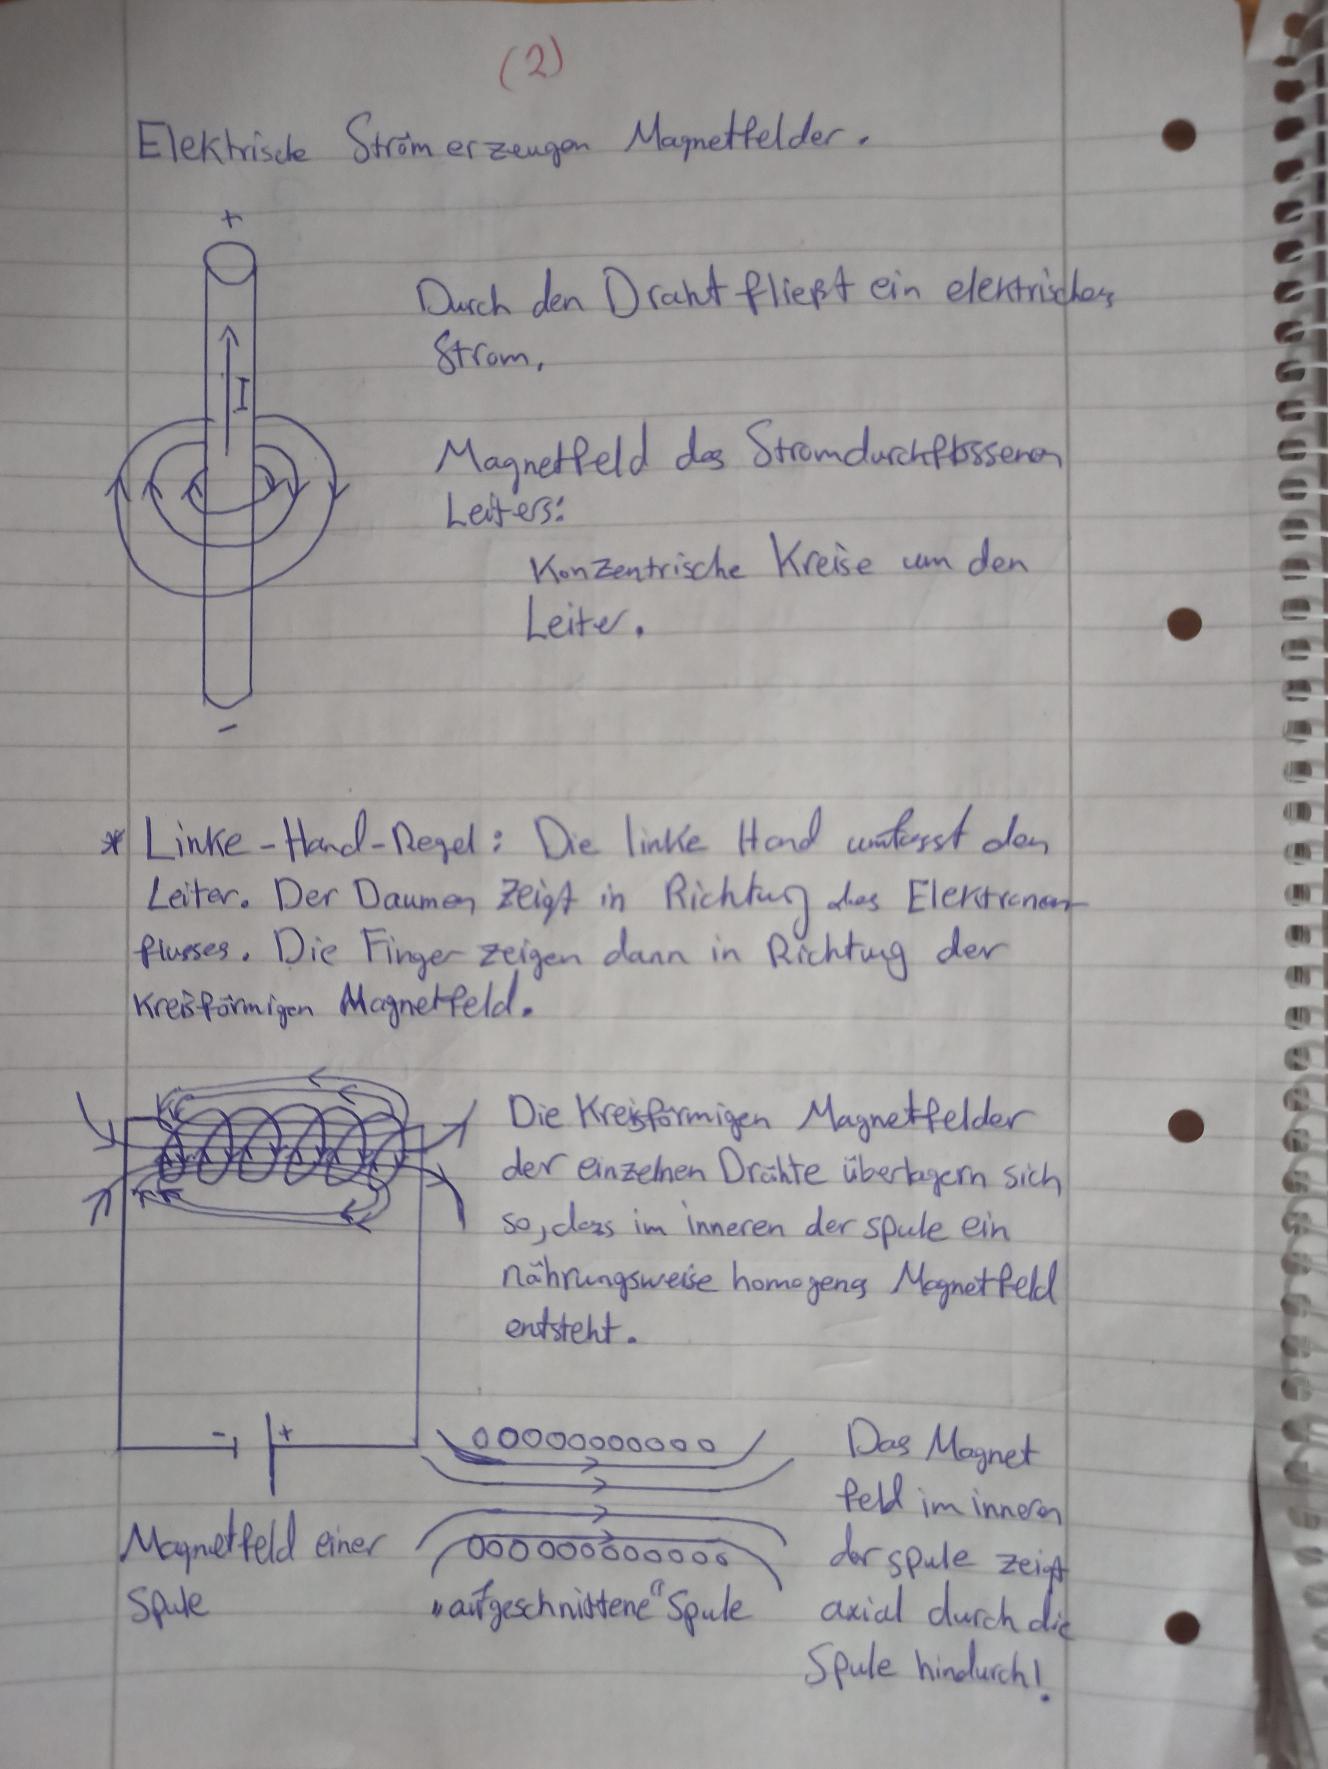 (2)
Elektrische Ström erzeugen Magnetfelder.
+
Durch den Draht fließt ein elektrischer
Strom.
I
Magnetfeld des Stromdurchflossenen
Leiters:
Konzentrische Kreise um den
Leiter.
-
* Linke-Hand-Regel: Die linke Hand umfasst den
Leiter. Der Daumen zeigt in Richtung des Elektronen-
flusses. Die Finger zeigen dann in Richtung der
Kreisförmigen Magnetfeld.
Die Kreisförmigen Magnetfelder
der einzelnen Drähte überlagern sich
so, dass im inneren der spule ein
nährungsweise homogenes Magnetfeld
entsteht.
- +
Das Magnet
feld im inneren
der spule zeigt
axial durch die
Spule hindurch!
Magnetfeld einer
Spule
„aufgeschnittene" Spule